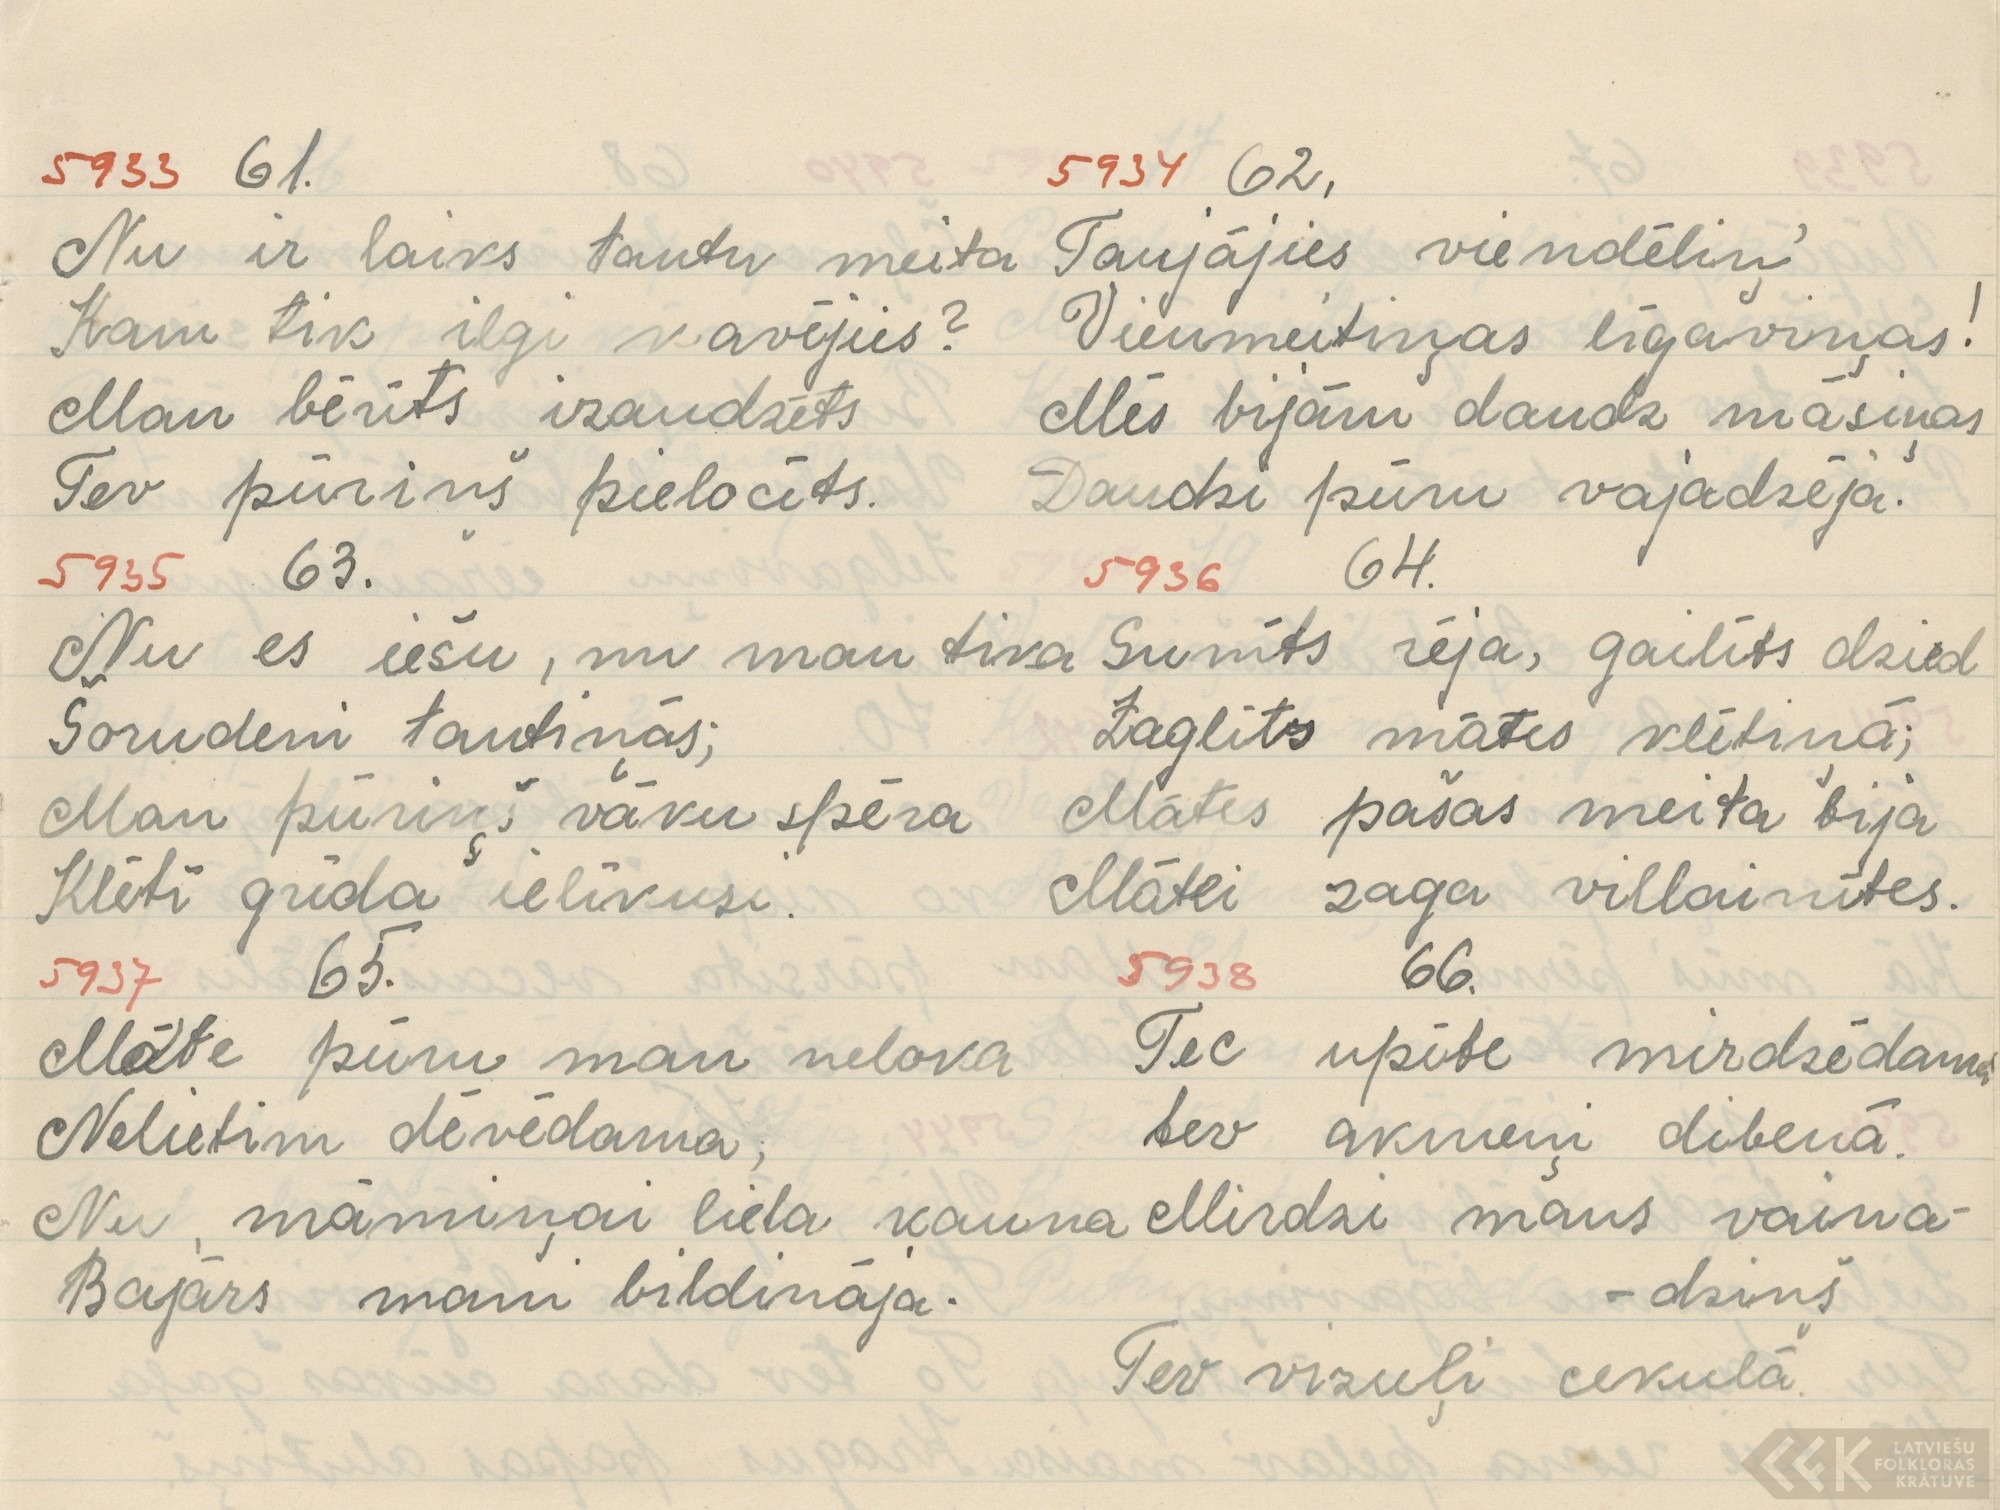 5933 61.
Nu ir laiks tautu meita
Kam tik ilgi kavējies?
Man bērīts izaudzēts
Tev pūriņš pielocīts.
5934 62.
Taujājies viendēliņ'
Vienmeitiņas līgaviņas!
Mēs bijām daudz māsiņas
Daudzi pūru vajadzēja.
5935 63.
Nu es iešu, nu man tika
Šorudeni tautiņās;
Man pūriņš vāku spēra
Klētī grīda ielīkusi.
5936 64.
Sunīts rēja, gailīts dzied
Zaglīts mātes klētiņā;
Mātes pašas meita bija
Mātei zaga villainītes.
5937 65.
Māte pūru man neloka
Nelietim dēvēdama;
Nu, māmiņai liela kauna
Bajārs mani bildināja.
5938 66.
Tec upīte mirdzēdama
tev akmeņi dibenā.
Mirdzi mans vaina-
-dziņš
Tev vizuļi cekulā.
LATVIEŠU
FOLKLORAS
KRĀTUVE